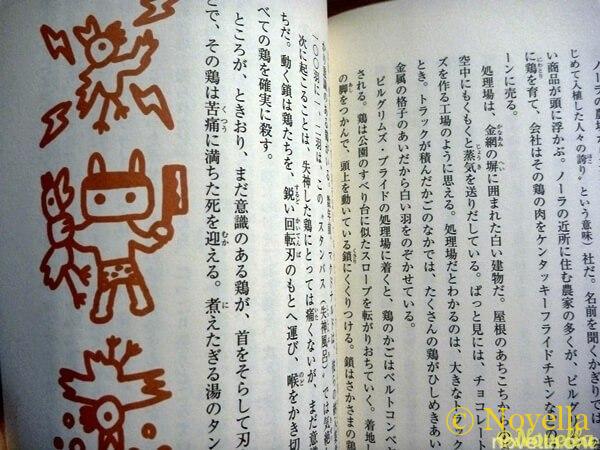 じめて入植した人々の誇り”という意味）社だ。名前を聞くかぎりでは
い商品が頭に浮かぶ。ノーラの近所に住む農家の多くが、ピルグ
に鶏を育て、会社はその鶏の肉をケンタッキーフライドチキンな
ーンに売る。
処理場は、金網の塀に囲まれた白い建物だ。屋根のあちこち
空中にもくもくと蒸気を送りだしている。ぱっと見には、チョコレート
ズを作る工場のように思える。処理場だとわかるのは、大きなトラッ
とき。トラックが積んだかごのなかでは、たくさんの鶏がひしめきあい
金属の格子のあいだから白い羽をのぞかせている。
ピルグリムズ・プライドの処理場に着くと、鶏のかごはベルトコンベ
される。鶏は公園のすべり台に似たスロープを転がりおちていく。着地し
の脚をつかんで、頭上を動いている鎖にくくりつける。鎖はさかさまの鶏
一〇〇羽に一、二羽は、この“スタンバス（失神風呂）”では気絶し
次に起こることは、失神した鶏にとっては痛くないが、まだ意識
ちだ。動く鎖は鶏たちを、鋭い回転刃のもとへ運び、喉をかき切
べての鶏を確実に殺す。
ところが、ときおり、まだ意識のある鶏が、首をそらして刃
とで、その鶏は苦痛に満ちた死を迎える。煮えたぎる湯のタン
© Novella